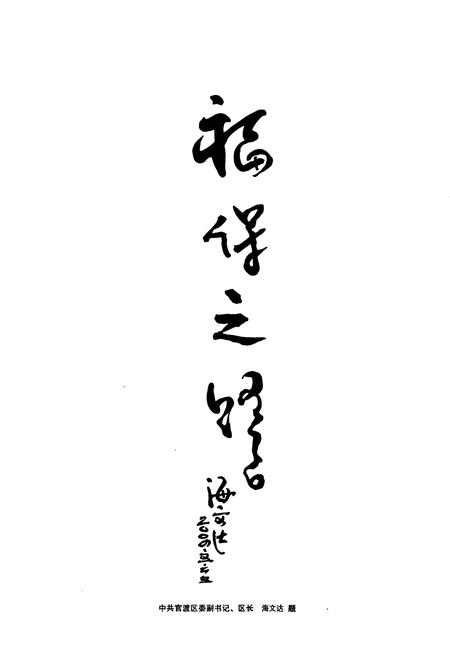 福保之路
海文达
中共官渡区委副书记、区长 海文达 题